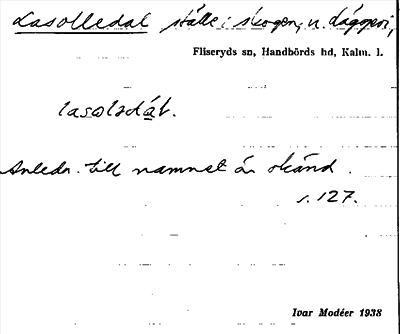 Lasolledal ställe i skogen, n. Lågperi,
Fliseryds sn, Handbörds hd, Kalm. l.
lasoləda̱l.
Anledn. till namnet är okänd.
s. 127.
Ivar Modéer 1938